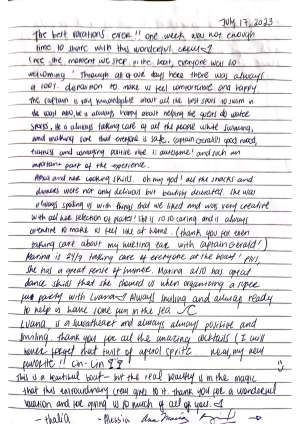 July 17, 2023
The best vacations ever!! one week was not enough
time to share with this wonderful crew! <3
Since the moment we step in the boat, everyone was so
welcoming! Through all our days here there was always
a 100% dedication to make us feel comfortable and happy
the captain is very knowledgeable about all the best spots to swim in
the and he's always happy about helping the guests do water
sports, he's always taking care of all the people while swimming,
and making sure that everyone is safe, captain Gerald's good mood,
and amazing service is awesome! and such an
important part of the experience.
and her cooking skills. oh my god! all the snacks and
dinners were not only delicious but beautifully decorated. she was
always with things that we liked and was very creative
with all her selection of plates! She is so caring and is always
to make us feel like at home. (thank you for even
taking care about my with captain Gerald!)
Marina is 24/7 taking care of everyone at the boat! plus,
she has a great sense of humor. Marina also has great
dance skills that she showed us when organizing a super
fun party with Ivana <3 Always smiling and always ready
to help us have some fun in the sea
Ivana is a sweetheart and always always positive and
smiling, thank you for all the amazing cocktails (I will
never forget that taste of aperol spritz new, my new
favorite!! cin-cin
This is a beautiful boat but the real beauty is in the magic
that this extraordinary crew gives to it. Thank you for a wonderful
vacation and for giving us so much of all of you. <3
- Thalia - Alessia